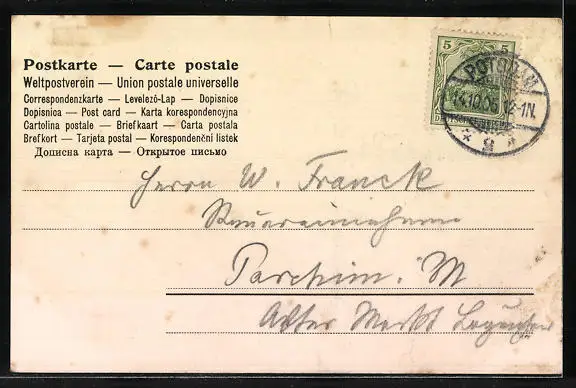 Postkarte — Carte postale
Weltpostverein — Union postale universelle
Correspondenzkarte — Levelező-Lap — Dopisnice
Dopisnica — Post card — Karta korespondencyjna
Cartolina postale — Briefkaart — Carta postala
Brefkort — Tarjeta postal — Korespondenční listek
Дописна карта — Открытое письмо
5 5
POTSDAM
14.10.06. 12-1N.
* g *
Herrn W. Franck
Parchim. M
Alter Markt